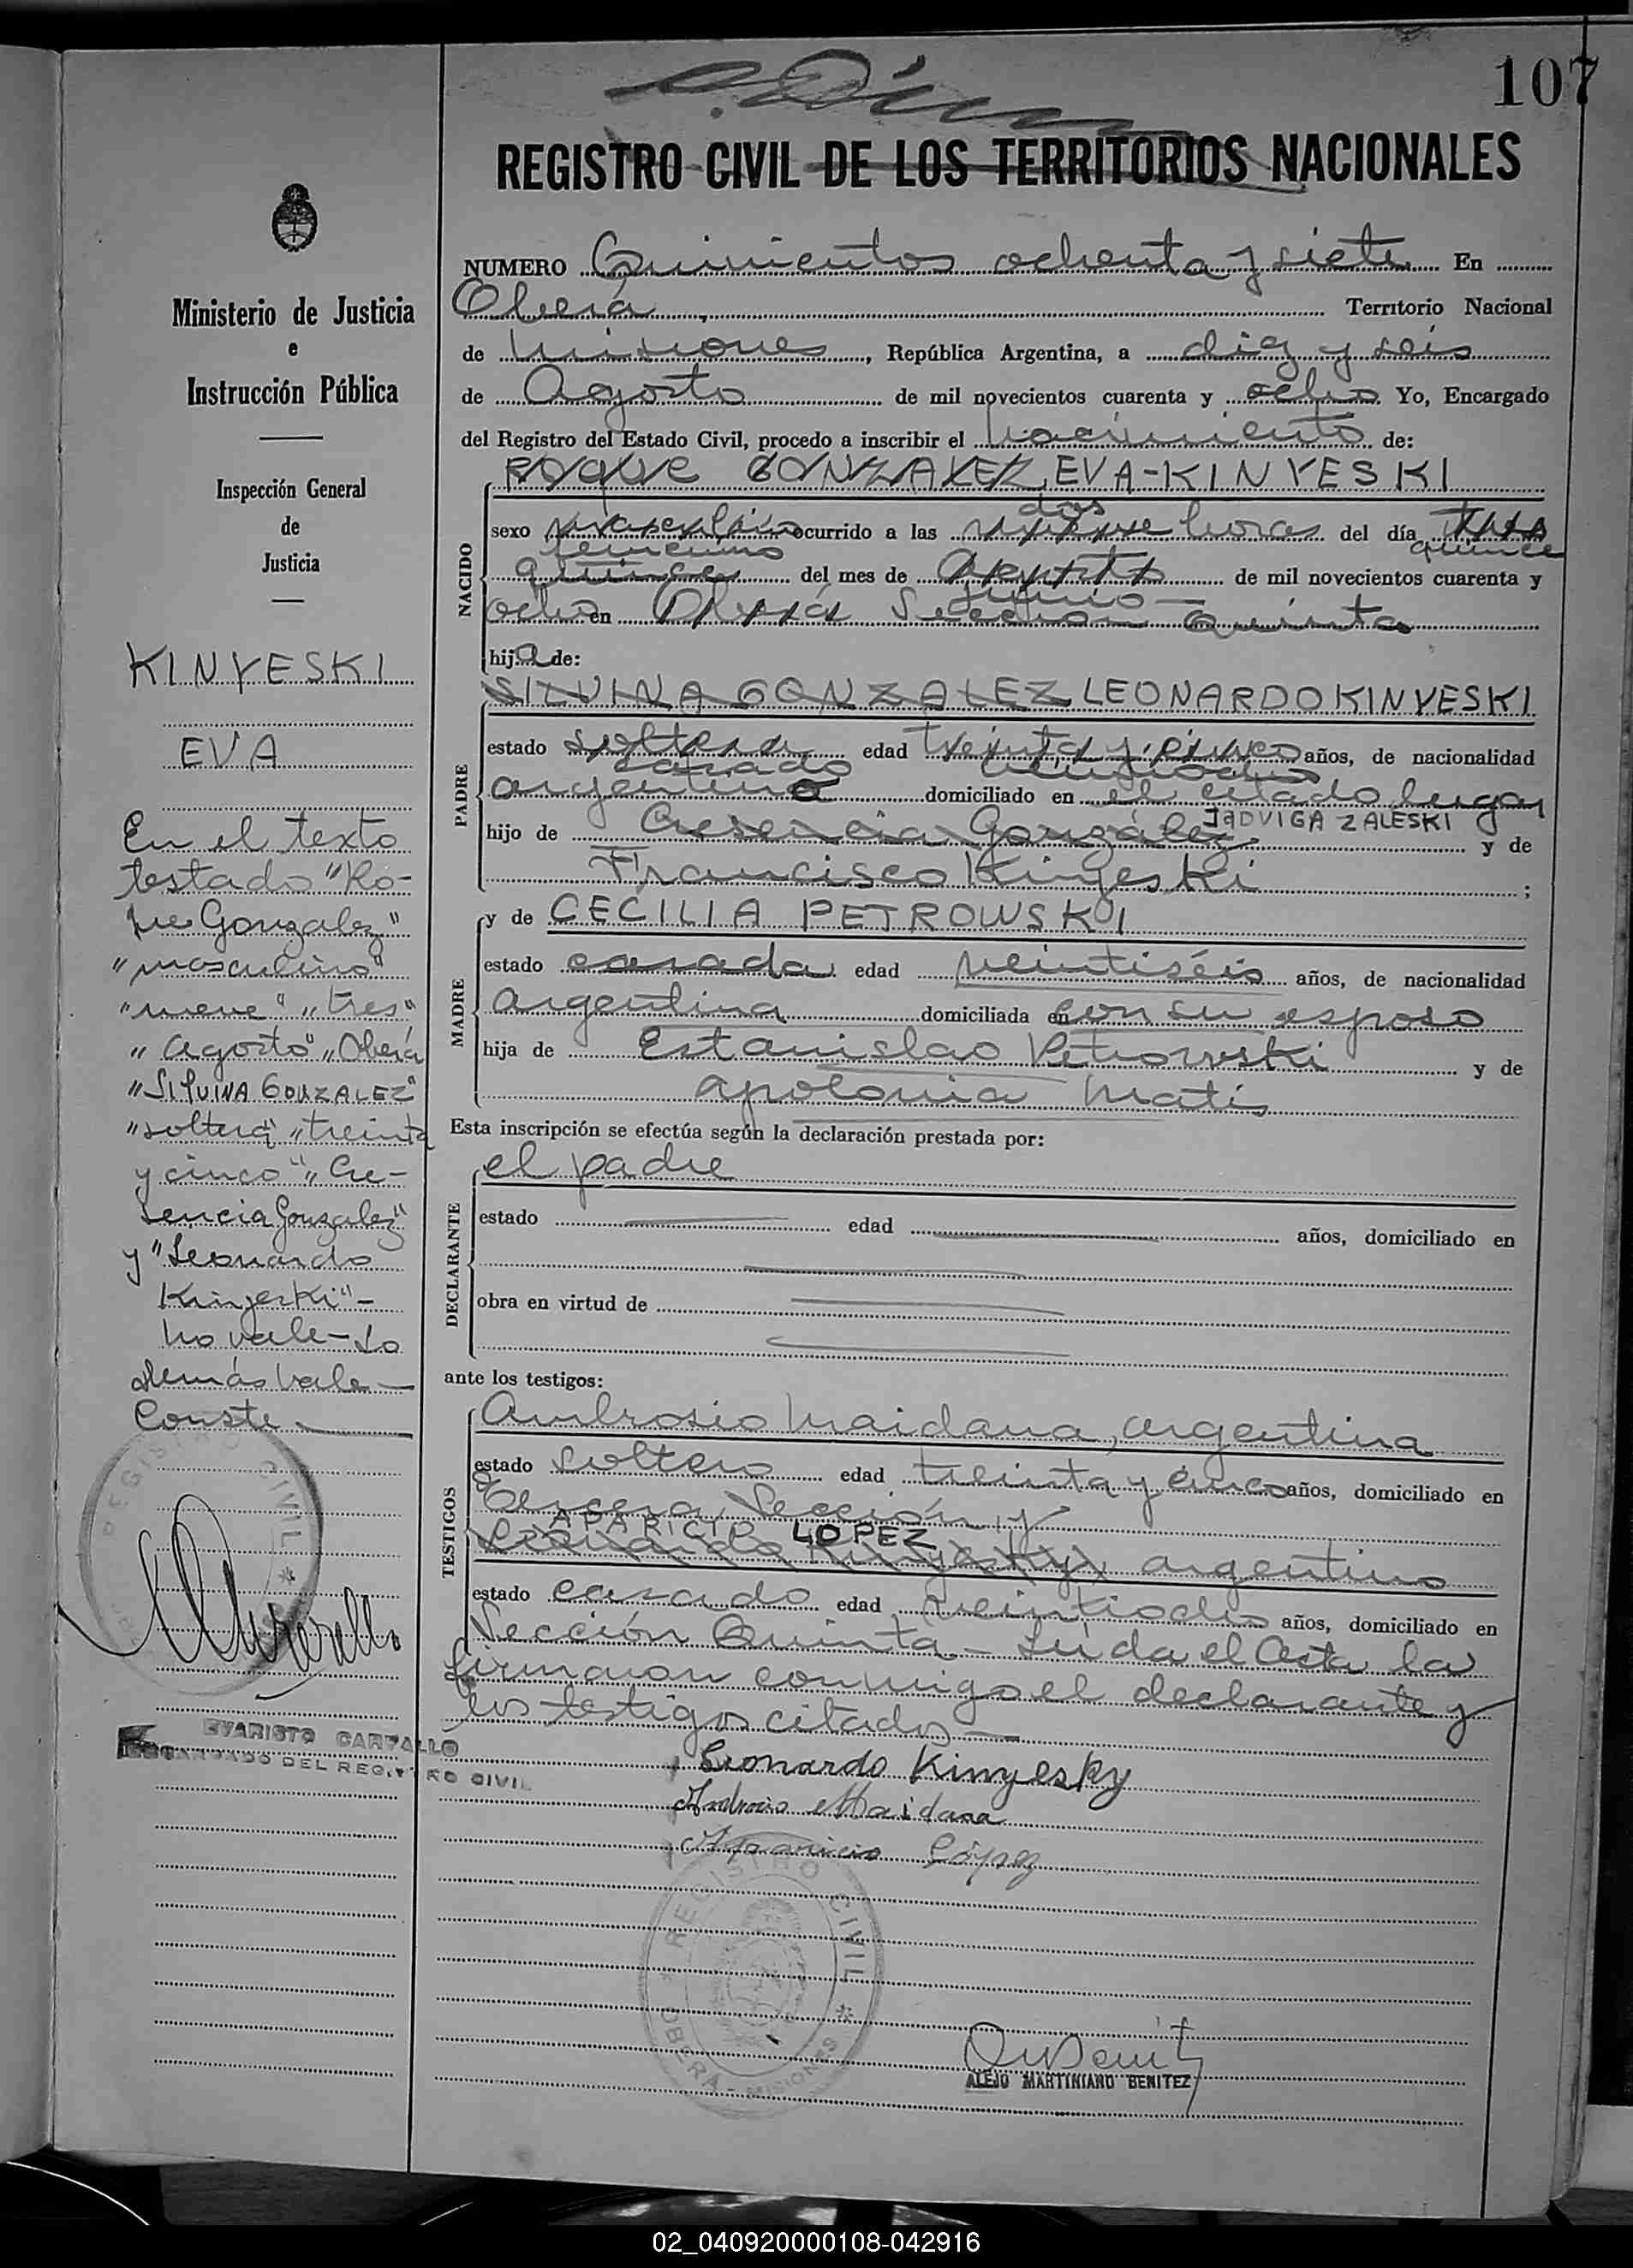 107
REGISTRO CIVIL DE LOS TERRITORIOS NACIONALES
Ministerio de Justicia
e
Instrucción Pública
Inspección General
de
Justicia
KINYESKI
EVA
En el texto
testado "Ro-
que Gonzalez"
"masculino"
"nueve" "tres"
"Agosto" "Oberá
"SILVINA GONZALEZ"
"soltera" "treinta
y cinco" "Cre-
sencia Gonzalez"
y "Leonardo
Kinyeski" -
no vale - Lo
demás vale -
Conste
REGISTRO CIVIL
EVARISTO CARVALLO
ENCARGADO DEL REGISTRO CIVIL
NUMERO Quinientos ochenta y siete En
Oberá, Territorio Nacional
de Misiones, República Argentina, a diez y seis
de Agosto de mil novecientos cuarenta y ocho Yo, Encargado
del Registro del Estado Civil, procedo a inscribir el nacimiento de:
NACIDO
ROQUE GONZALEZ EVA-KINYESKI
dos
sexo masculino ocurrido a las nueve horas del día tres
femenino quince
quince del mes de Agosto de mil novecientos cuarenta y
junio
ocho en Oberá Sección Quinta
hija de:
PADRE
SILVINA GONZALEZ LEONARDO KINYESKI
estado soltera edad treinta y cinco años, de nacionalidad
casado veintiocho
argentino domiciliado en el citado lugar
JADVIGA ZALESKI
hijo de Cresencia González y de
Francisco Kinyeski ;
MADRE
y de CECILIA PETROWSKI
estado casada edad veintiséis años, de nacionalidad
argentina domiciliada en con su esposo
hija de Estanislao Petrowski y de
Apolonia Matis
Esta inscripción se efectúa según la declaración prestada por:
DECLARANTE
el padre
estado edad años, domiciliado en
obra en virtud de
ante los testigos:
TESTIGOS
Ambrosio Maidana, argentina
estado soltero edad treinta y cinco años, domiciliado en
Tercera Sección y
APARICIO LOPEZ
Leonardo Kinyesky argentino
estado casado edad veintiocho años, domiciliado en
Sección Quinta - Leída el Acta la
firmaron conmigo el declarante y
los testigos citados
Leonardo Kinyesky
Ambrosio Maidana
Aparicio López
REGISTRO CIVIL
OBERA - MISIONES
ALEJO MARTINIANO BENITEZ
02_040920000108-042916